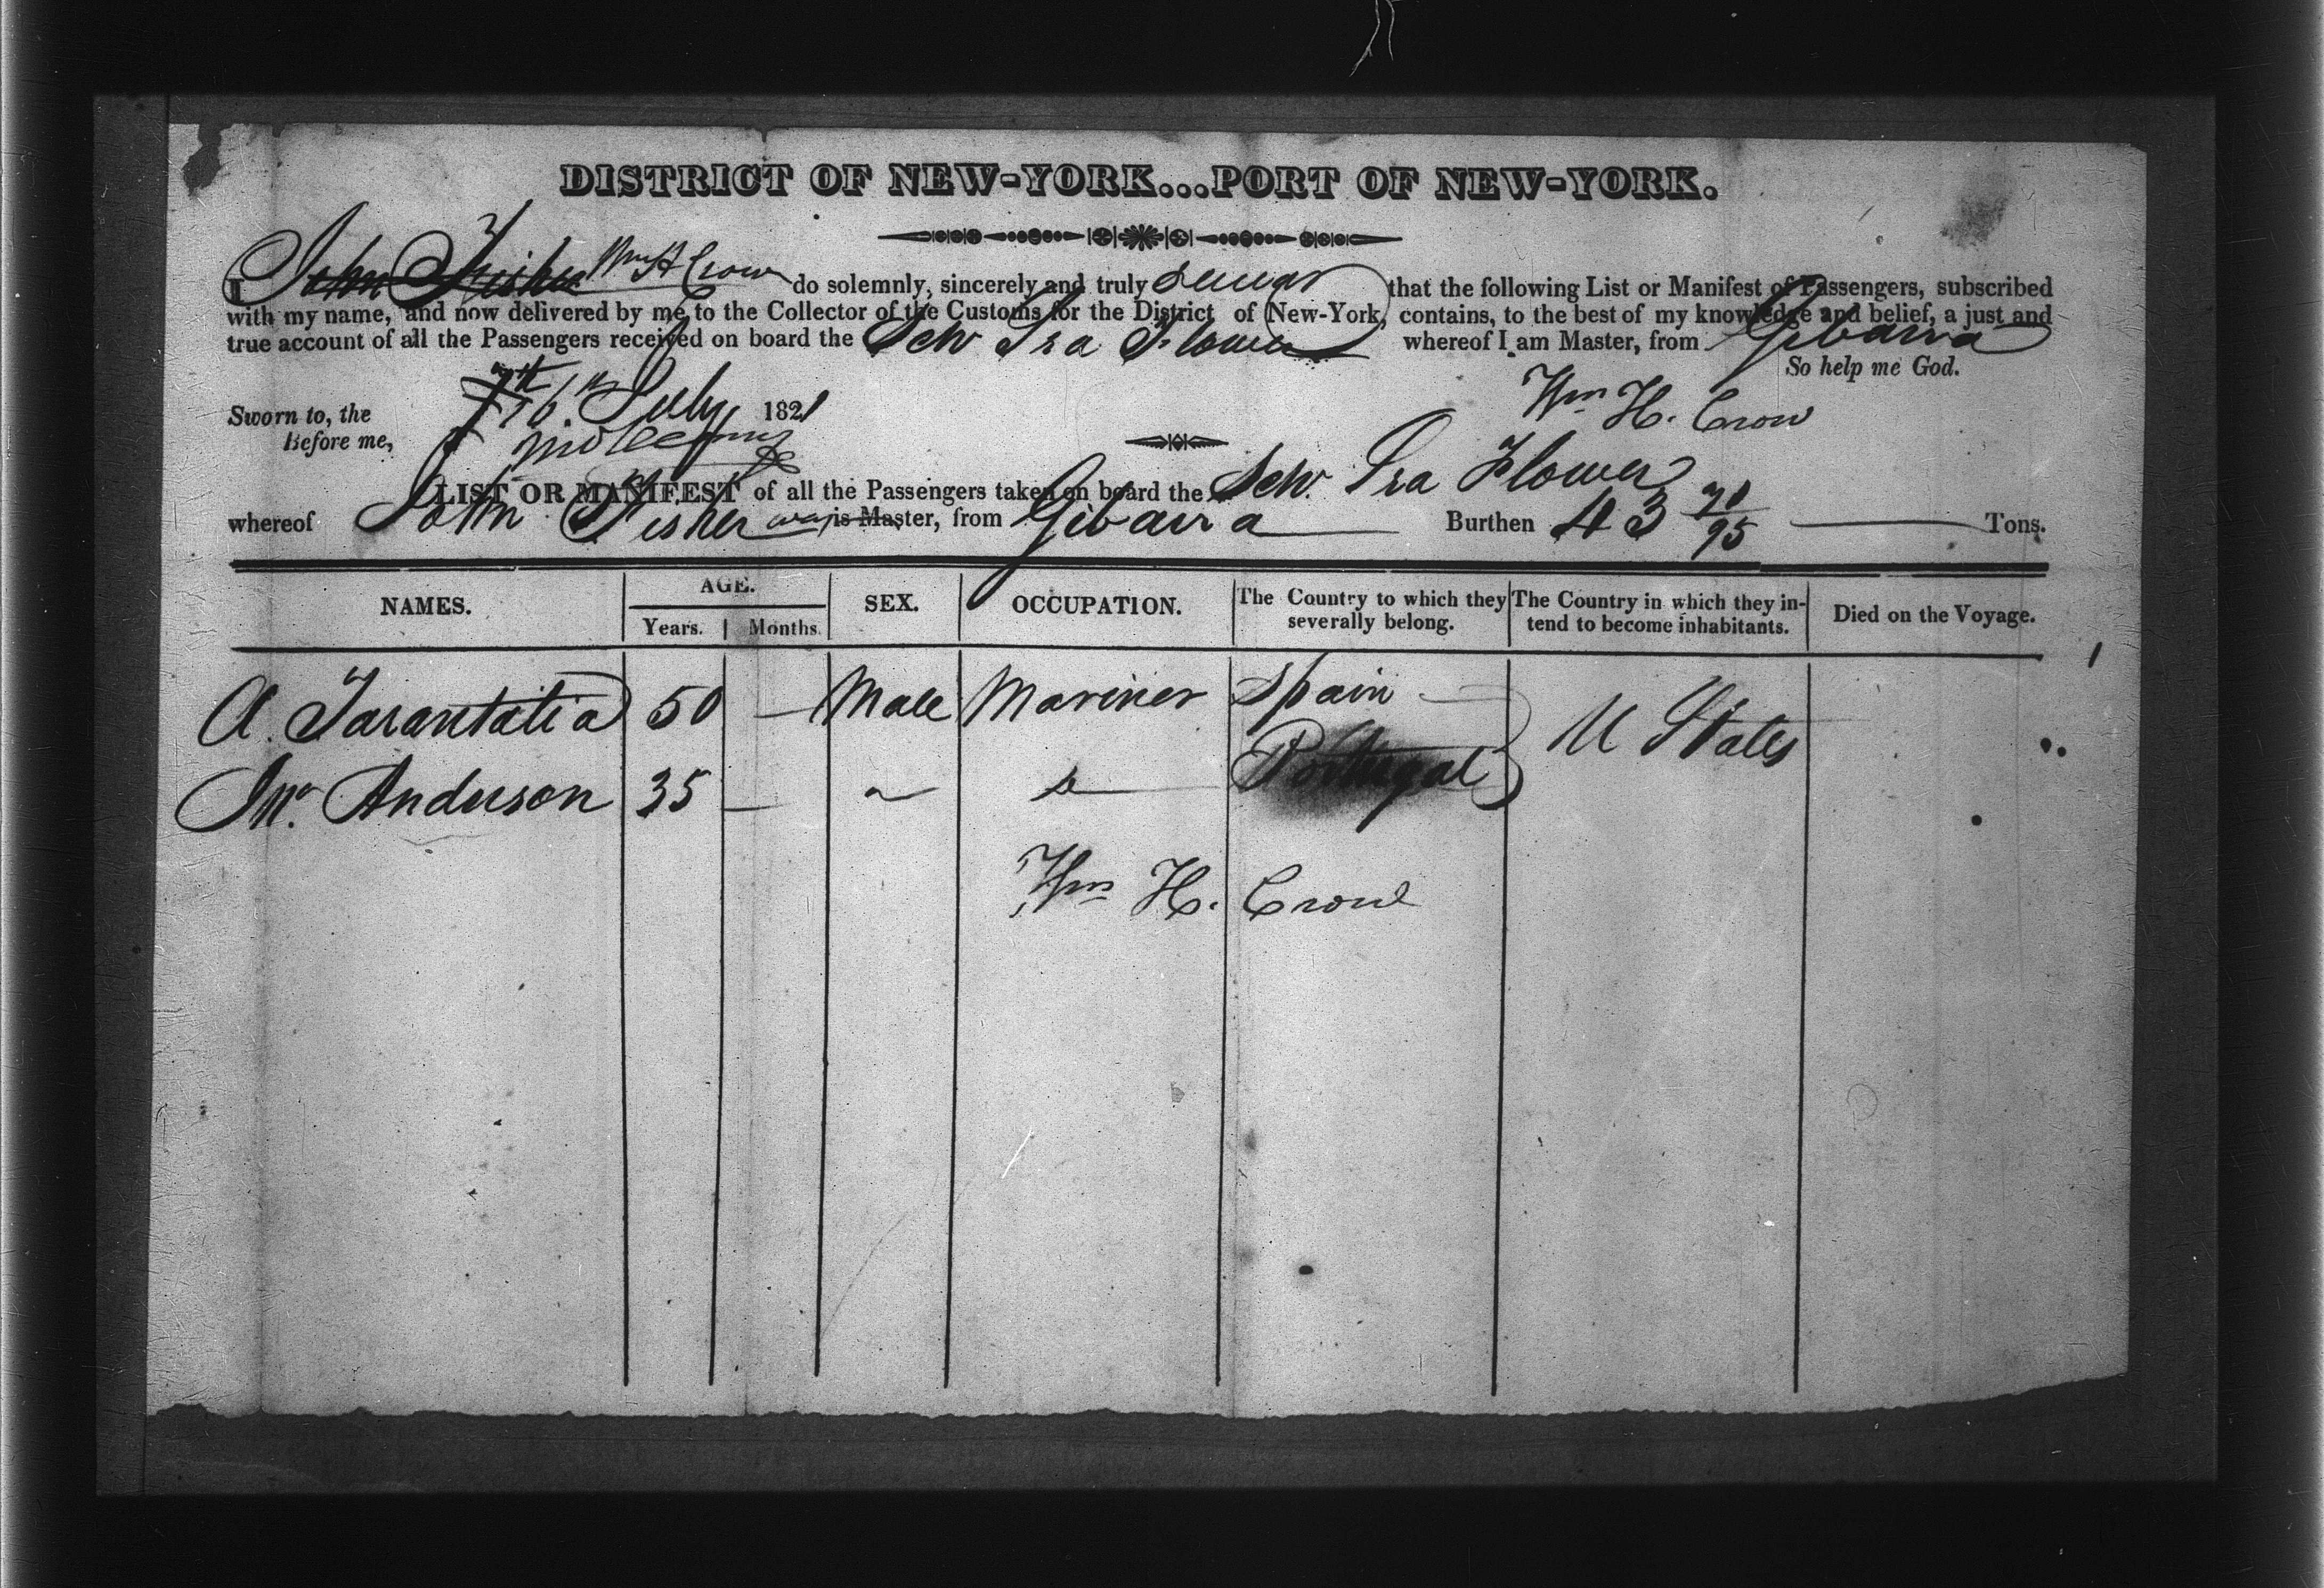 DISTRICT OF NEW-YORK...PORT OF NEW-YORK.
I John Fisher Wm H Crow do solemnly, sincerely and truly swear that the following List or Manifest of Passengers, subscribed
with my name, and now delivered by me to the Collector of the Customs for the District of New-York, contains, to the best of my knowledge and belief, a just and
true account of all the Passengers received on board the Schr Ira Flower whereof I am Master, from Gibarra
So help me God.
Sworn to, the July, 1821
Wm H. Crow
Before me,
LIST OR MANIFEST of all the Passengers taken on board the Schr. Ira Flower
whereof John Fisher was is Master, from Gibarra Burthen 43 71/95 Tons.
NAMES. AGE. SEX. OCCUPATION. The Country to which they severally belong. The Country in which they intend to become inhabitants. Died on the Voyage.
Years. Months.
A. Tarantatia 50 — Male Mariner Spain U States
Anderson 35 — Portugal
Wm H. Crow